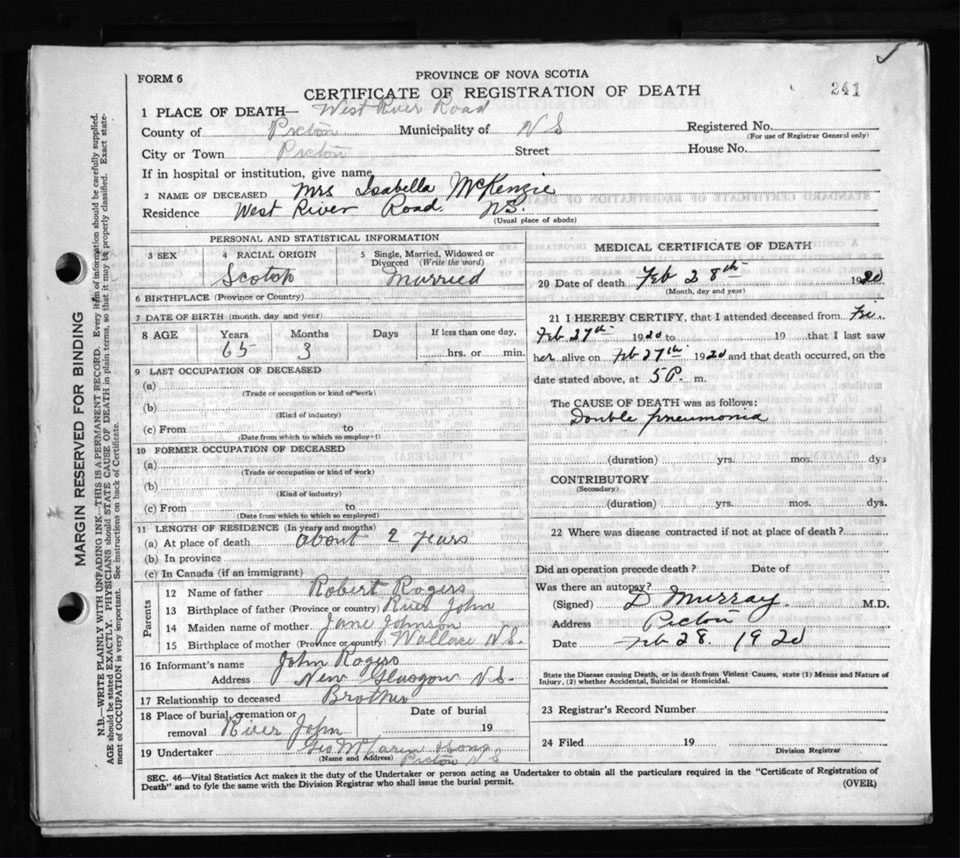 FORM 6
PROVINCE OF NOVA SCOTIA
CERTIFICATE OF REGISTRATION OF DEATH
241
1 PLACE OF DEATH— West River Road
County of Pictou Municipality of N S Registered No.
(For use of Registrar General only)
City or Town Pictou Street House No.
If in hospital or institution, give name
2 NAME OF DECEASED Mrs Isabella McKenzie
Residence West River Road. N.S.
(Usual place of abode)
PERSONAL AND STATISTICAL INFORMATION
3 SEX 4 RACIAL ORIGIN 5 Single, Married, Widowed or
Divorced (Write the word)
Scotch Married
6 BIRTHPLACE (Province or Country)
7 DATE OF BIRTH (month, day and year)
8 AGE Years Months Days If less than one day,
65 3 hrs. or min.
9 LAST OCCUPATION OF DECEASED
(a)
(Trade or occupation or kind of work)
(b)
(Kind of industry)
(c) From to
(Date from which to which so employed)
10 FORMER OCCUPATION OF DECEASED
(a)
(Trade or occupation or kind of work)
(b)
(Kind of industry)
(c) From to
(Date from which to which so employed)
11 LENGTH OF RESIDENCE (In years and months)
(a) At place of death about 2 years
(b) In province
(c) In Canada (if an immigrant)
Parents
12 Name of father Robert Rogers
13 Birthplace of father (Province or country) River John
14 Maiden name of mother Jane Johnson
15 Birthplace of mother (Province or country) Wallace N.S.
16 Informant's name John Rogers
Address New Glasgow N.S.
17 Relationship to deceased Brother
18 Place of burial, cremation or Date of burial
removal River John 19
19 Undertaker Geo McLaren
(Name and Address) Pictou N S
MEDICAL CERTIFICATE OF DEATH
20 Date of death Feb 28th 1920
(Month, day and year)
21 I HEREBY CERTIFY, that I attended deceased from Fri.
Feb 27th 1920 to 19 that I last saw
her alive on Feb 27th 1920 and that death occurred, on the
date stated above, at 5 P. m.
The CAUSE OF DEATH was as follows:
Double pneumonia
(duration) yrs. mos. dys
CONTRIBUTORY
(Secondary)
(duration) yrs. mos. dys.
22 Where was disease contracted if not at place of death?
Did an operation precede death? Date of
Was there an autopsy?
(Signed) D Murray. M.D.
Address Pictou
Date Feb 28. 1920
State the Disease causing Death, or in death from Violent Causes, state (1) Means and Nature of
Injury, (2) whether Accidental, Suicidal or Homicidal.
23 Registrar's Record Number
24 Filed 19
Division Registrar
SEC. 46—Vital Statistics Act makes it the duty of the Undertaker or person acting as Undertaker to obtain all the particulars required in the "Certificate of Registration of
Death" and to fyle the same with the Division Registrar who shall issue the burial permit. (OVER)
MARGIN RESERVED FOR BINDING
N.B.—WRITE PLAINLY WITH UNFADING INK—THIS IS A PERMANENT RECORD. Every item of information should be carefully supplied.
AGE should be stated EXACTLY. PHYSICIANS should STATE CAUSE OF DEATH in plain terms, so that it may be properly classified. Exact state-
ment of OCCUPATION is very important. See instructions on back of Certificate.